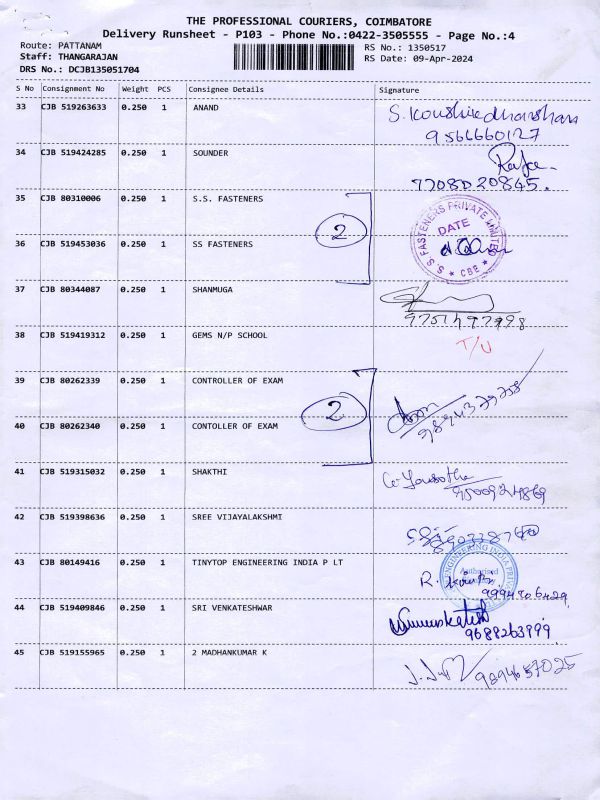 THE PROFESSIONAL COURIERS, COIMBATORE
Delivery Runsheet - P103 - Phone No.:0422-3505555 - Page No.:4
Route: PATTANAM
RS No.: 1350517
Staff: THANGARAJAN
RS Date: 09-Apr-2024
DRS No.: DCJB135051704
S No Consignment No Weight PCS Consignee Details Signature
33 CJB 519263633 0.250 1 ANAND
9566660127
34 CJB 519424285 0.250 1 SOUNDER
7708020845.
35 CJB 80310006 0.250 1 S.S. FASTENERS
2
S.S. FASTENERS PRIVATE LIMITED
DATE
★ CBE ★
36 CJB 519453036 0.250 1 SS FASTENERS
37 CJB 80344087 0.250 1 SHANMUGA
9751497998
38 CJB 519419312 0.250 1 GEMS N/P SCHOOL
T/U
39 CJB 80262339 0.250 1 CONTROLLER OF EXAM
2
40 CJB 80262340 0.250 1 CONTOLLER OF EXAM
41 CJB 519315032 0.250 1 SHAKTHI
42 CJB 519398636 0.250 1 SREE VIJAYALAKSHMI
43 CJB 80149416 0.250 1 TINYTOP ENGINEERING INDIA P LT
ENGINEERING INDIA
Authorised
R.
9994706429
44 CJB 519409846 0.250 1 SRI VENKATESHWAR
9688263999
45 CJB 519155965 0.250 1 2 MADHANKUMAR K
9894657025